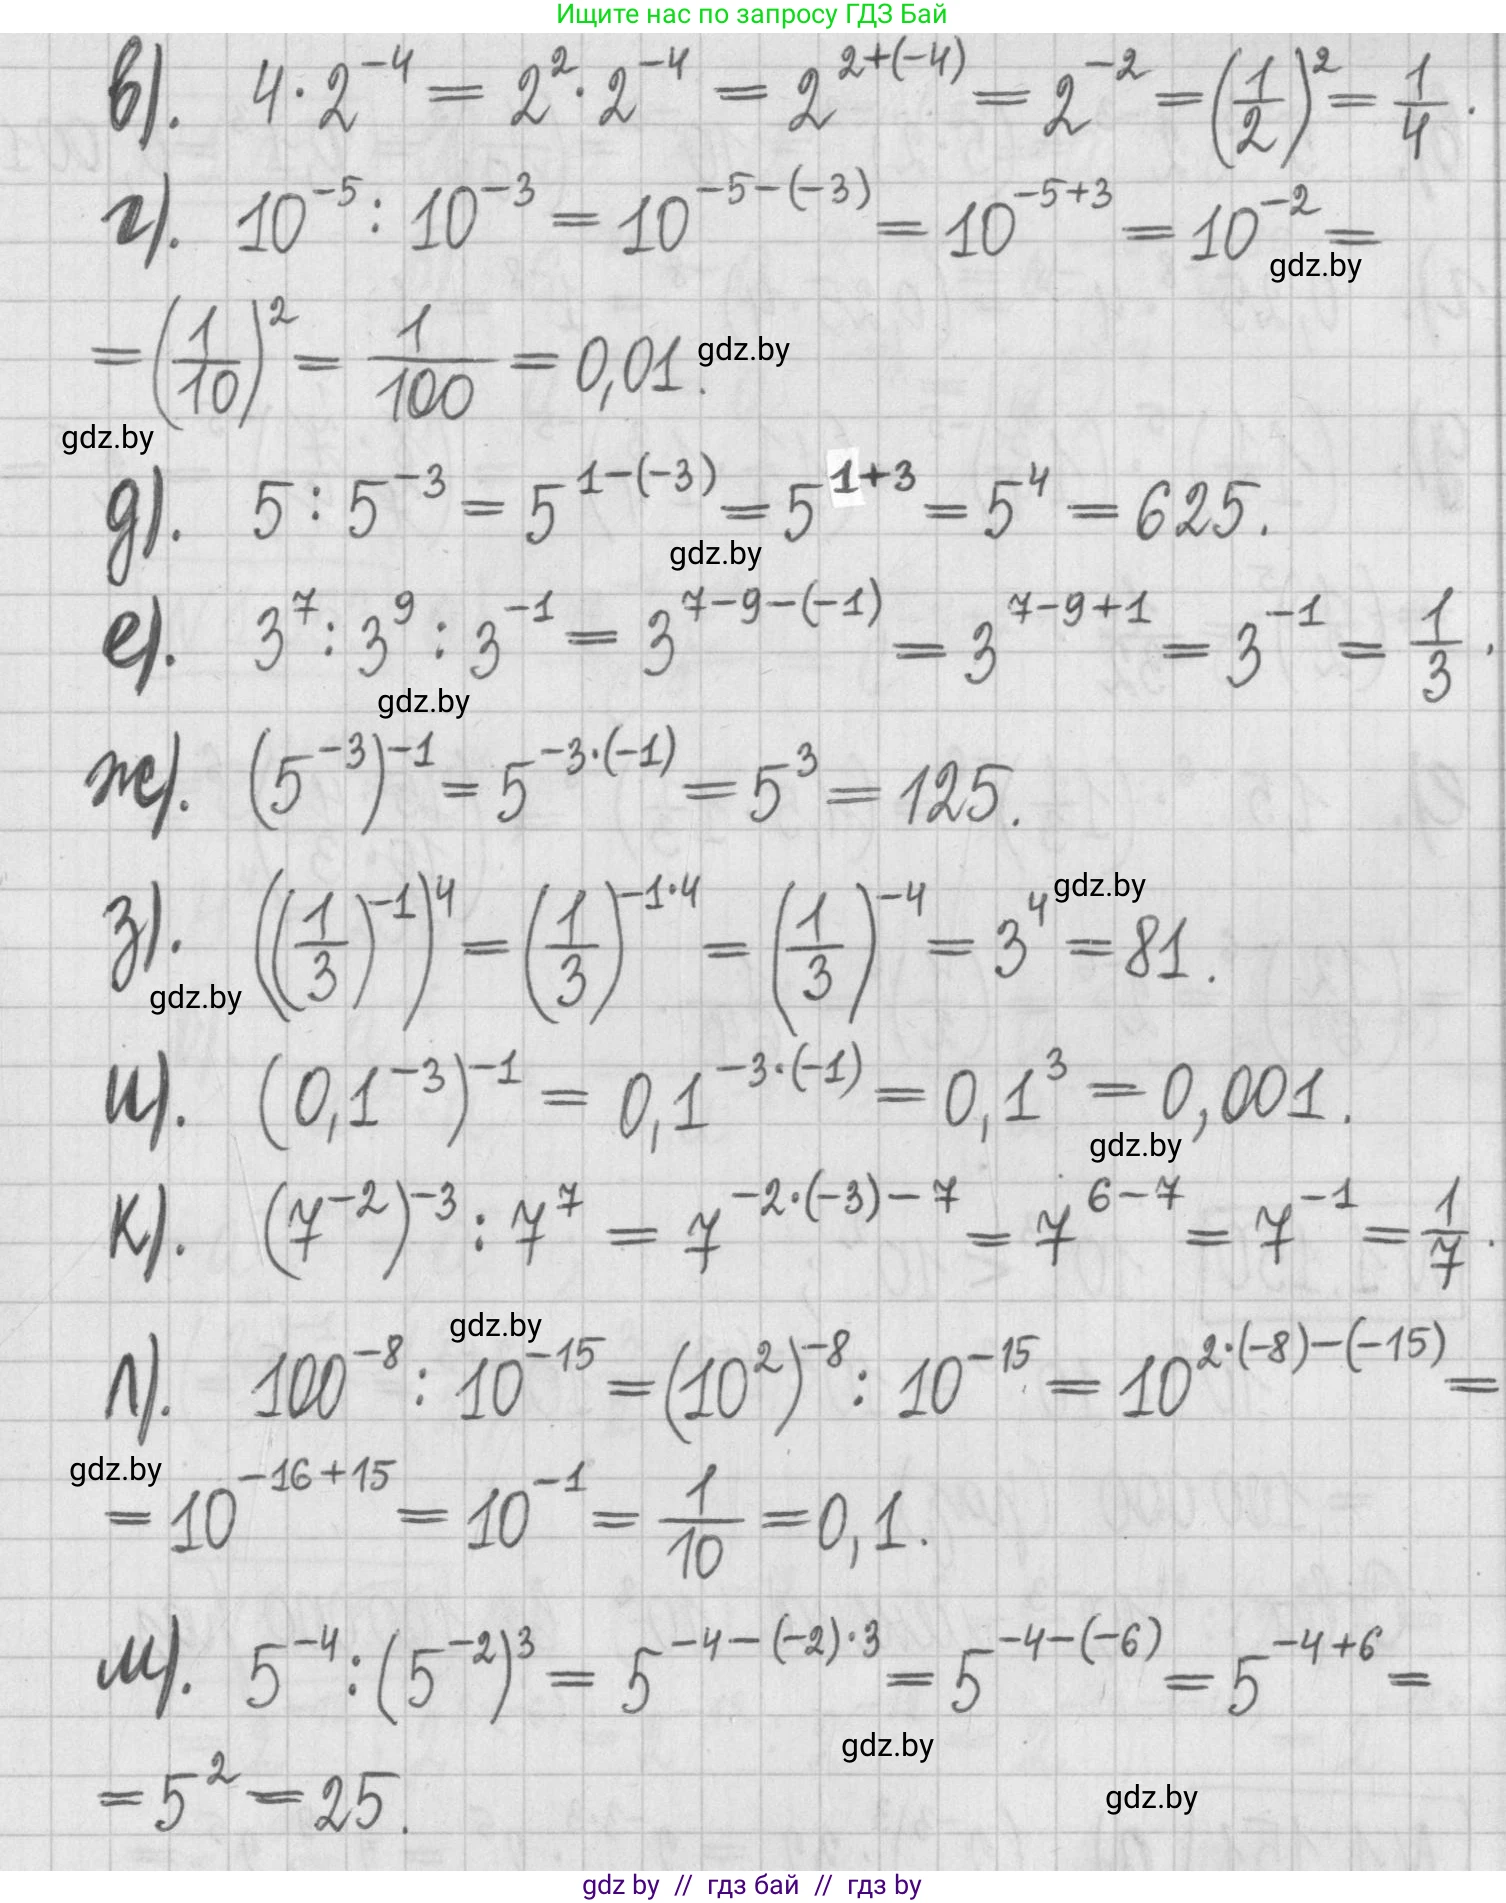 Ищите нас по запросу ГДЗ Бай
в). 4·2⁻⁴ = 2²·2⁻⁴ = 2²⁺⁽⁻⁴⁾ = 2⁻² = (1/2)² = 1/4.
г). 10⁻⁵ : 10⁻³ = 10⁻⁵⁻⁽⁻³⁾ = 10⁻⁵⁺³ = 10⁻² =
gdz.by
= (1/10)² = 1/100 = 0,01.
gdz.by
gdz.by
д). 5 : 5⁻³ = 5¹⁻⁽⁻³⁾ = 5¹⁺³ = 5⁴ = 625.
gdz.by
е). 3⁷ : 3⁹ : 3⁻¹ = 3⁷⁻⁹⁻⁽⁻¹⁾ = 3⁷⁻⁹⁺¹ = 3⁻¹ = 1/3.
gdz.by
ж). (5⁻³)⁻¹ = 5^(-3·(-1)) = 5³ = 125.
gdz.by
з). ((1/3)⁻¹)⁴ = (1/3)^(-1·4) = (1/3)⁻⁴ = 3⁴ = 81.
gdz.by
и). (0,1⁻³)⁻¹ = 0,1^(-3·(-1)) = 0,1³ = 0,001.
gdz.by
к). (7⁻²)⁻³ : 7⁷ = 7^(-2·(-3)-7) = 7⁶⁻⁷ = 7⁻¹ = 1/7.
gdz.by
л). 100⁻⁸ : 10⁻¹⁵ = (10²)⁻⁸ : 10⁻¹⁵ = 10^(2·(-8)-(-15)) =
gdz.by
= 10⁻¹⁶⁺¹⁵ = 10⁻¹ = 1/10 = 0,1.
м). 5⁻⁴ : (5⁻²)³ = 5^(-4-(-2)·3) = 5⁻⁴⁻⁽⁻⁶⁾ = 5⁻⁴⁺⁶ =
gdz.by
= 5² = 25.
gdz.by
gdz by // гдз бай // гдз by